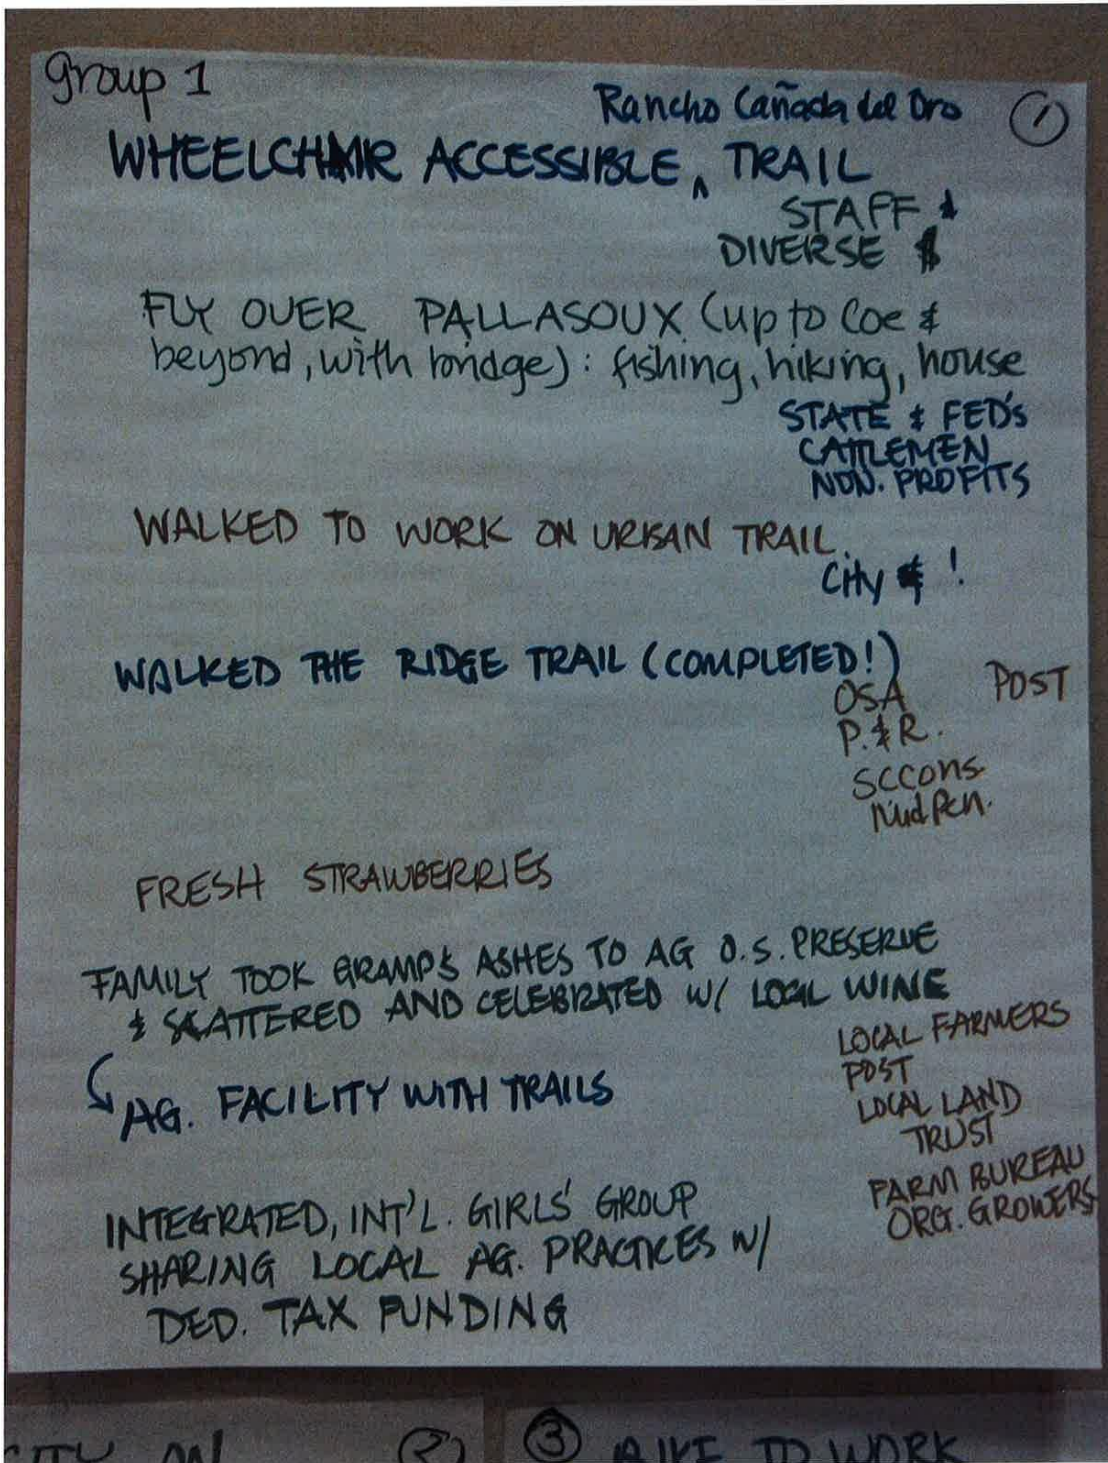 Group 1
Rancho Cañada del Oro
①
WHEELCHAIR ACCESSIBLE ^ TRAIL
STAFF &
DIVERSE $
FLY OVER PALLASOUX (up to Coe &
beyond, with bridge): fishing, hiking, house
STATE & FED'S
CATTLEMEN
NON. PROFITS
WALKED TO WORK ON URBAN TRAIL.
City $ !
WALKED THE RIDGE TRAIL (COMPLETED!)
OSA POST
P. & R.
SCCons
Mid Pen.
FRESH STRAWBERRIES
FAMILY TOOK GRAMP'S ASHES TO AG O.S. PRESERVE
& SCATTERED AND CELEBRATED W/ LOCAL WINE
LOCAL FARMERS
POST
AG. FACILITY WITH TRAILS
LOCAL LAND
TRUST
FARM BUREAU
ORG. GROWERS
INTEGRATED, INT'L. GIRLS' GROUP
SHARING LOCAL AG. PRACTICES W/
DED. TAX FUNDING
②
③ BIKE TO WORK